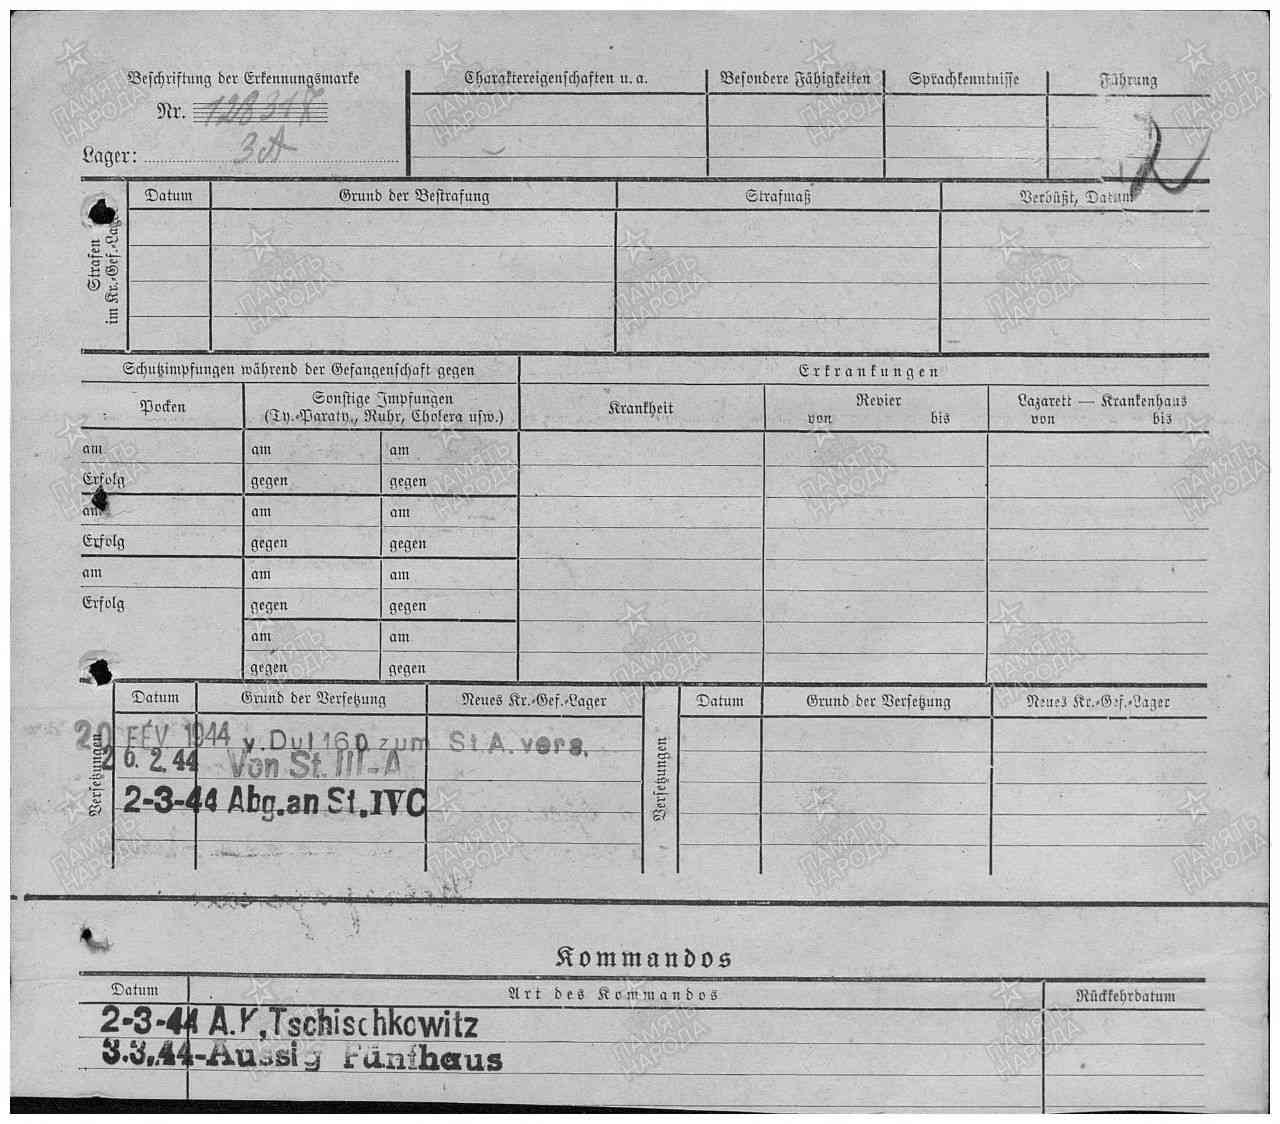 Beschriftung der Erkennungsmarke
Nr. 128317
Lager: 3A
Charaktereigenschaften u. a.
Besondere Fähigkeiten
Sprachkenntnisse
Führung
2
Strafen im Kr.-Gef.-Lager
Datum
Grund der Bestrafung
Strafmaß
Verbüßt, Datum
Schutzimpfungen während der Gefangenschaft gegen
Erkrankungen
Pocken
Sonstige Impfungen
(Ty.-Paraty., Ruhr, Cholera usw.)
Krankheit
Revier
von bis
Lazarett — Krankenhaus
von bis
am am am
Erfolg gegen gegen
am am am
Erfolg gegen gegen
am am am
Erfolg gegen gegen
am am
gegen gegen
Versetzungen
Datum Grund der Versetzung Neues Kr.-Gef.-Lager
20 FÉV 1944 v. Dul 160 zum St A. vers.
26. 2. 44 Von St. III-A
2-3-44 Abg. an St. IVC
Versetzungen
Datum Grund der Versetzung Neues Kr.-Gef.-Lager
Kommandos
Datum Art des Kommandos Rückkehrdatum
2-3-44 A.K, Tschischkowitz
3.3.44-Aussig Fünfhaus
ПАМЯТЬ НАРОДА